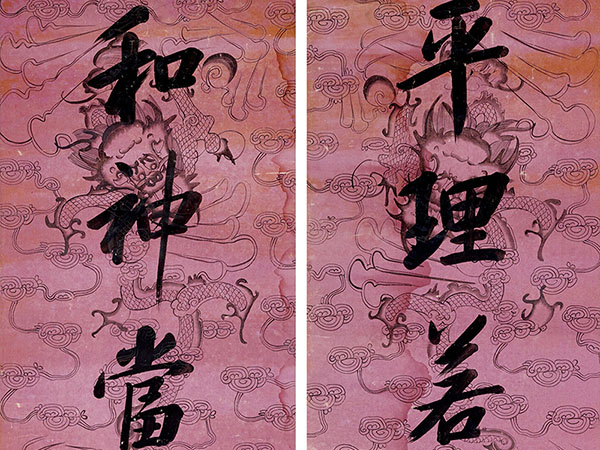 平理若
和神當